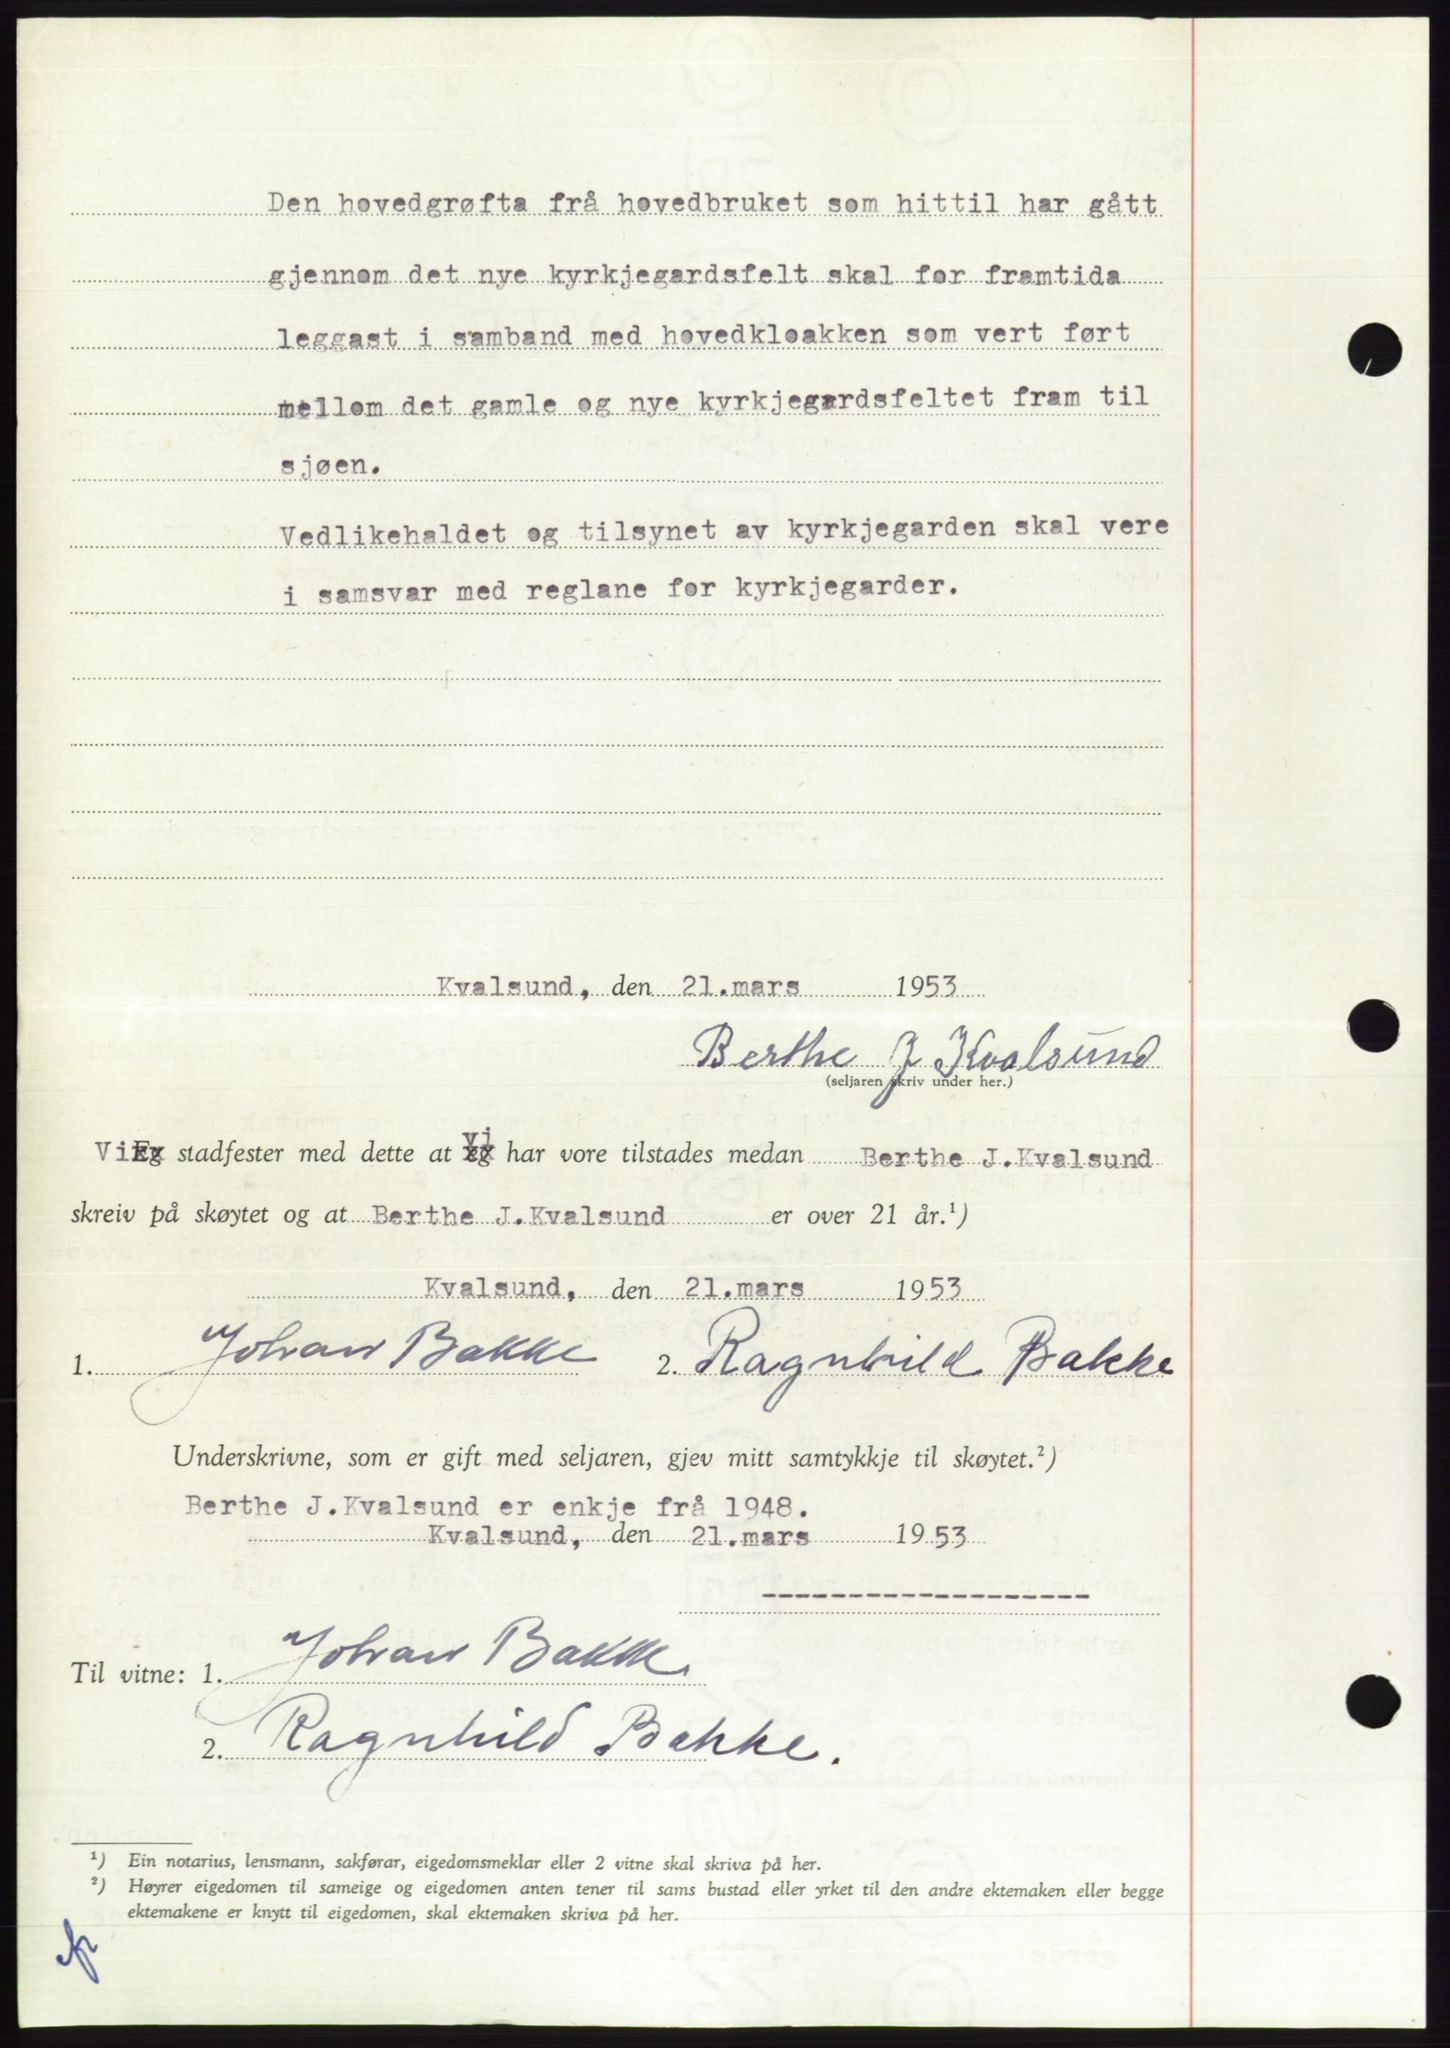 Den hovedgrøfta frå hovedbruket som hittil har gått
gjennom det nye kyrkjegardsfelt skal for framtida
leggast i samband med hovedkloakken som vert ført
mellom det gamle og nye kyrkjegardsfeltet fram til
sjøen.
Vedlikehaldet og tilsynet av kyrkjegarden skal vere
i samsvar med reglane for kyrkjegarder.
Kvalsund, den 21.mars 1953
Berthe J Kvalsund
(seljaren skriv under her.)
Vi stadfester med dette at vi har vore tilstades medan Berthe J.Kvalsund
skreiv på skøytet og at Berthe J.Kvalsund er over 21 år.¹)
Kvalsund, den 21.mars 1953
1. Johan Bakke 2. Ragnhild Bakke
Underskrivne, som er gift med seljaren, gjev mitt samtykkje til skøytet.²)
Berthe J.Kvalsund er enkje frå 1948.
Kvalsund, den 21.mars 1953
-------------------
Til vitne: 1. Johan Bakke
2. Ragnhild Bakke.
¹) Ein notarius, lensmann, sakførar, eigedomsmeklar eller 2 vitne skal skriva på her.
²) Høyrer eigedomen til sameige og eigedomen anten tener til sams bustad eller yrket til den andre ektemaken eller begge
ektemakene er knytt til eigedomen, skal ektemaken skriva på her.